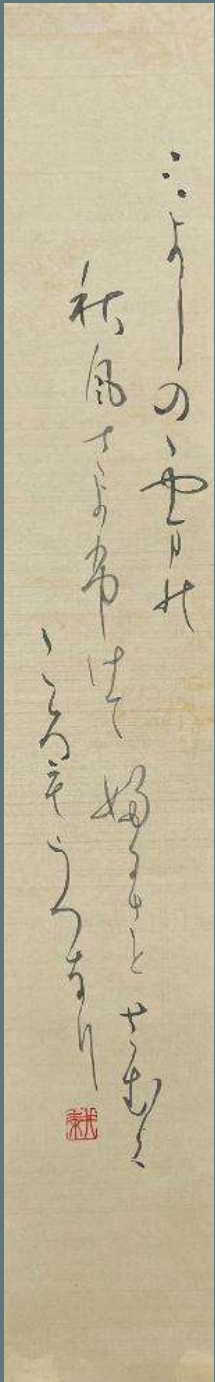 みよしのゝやま能
秋風さよ布けて
婦るさとさむく
ころもうつなり